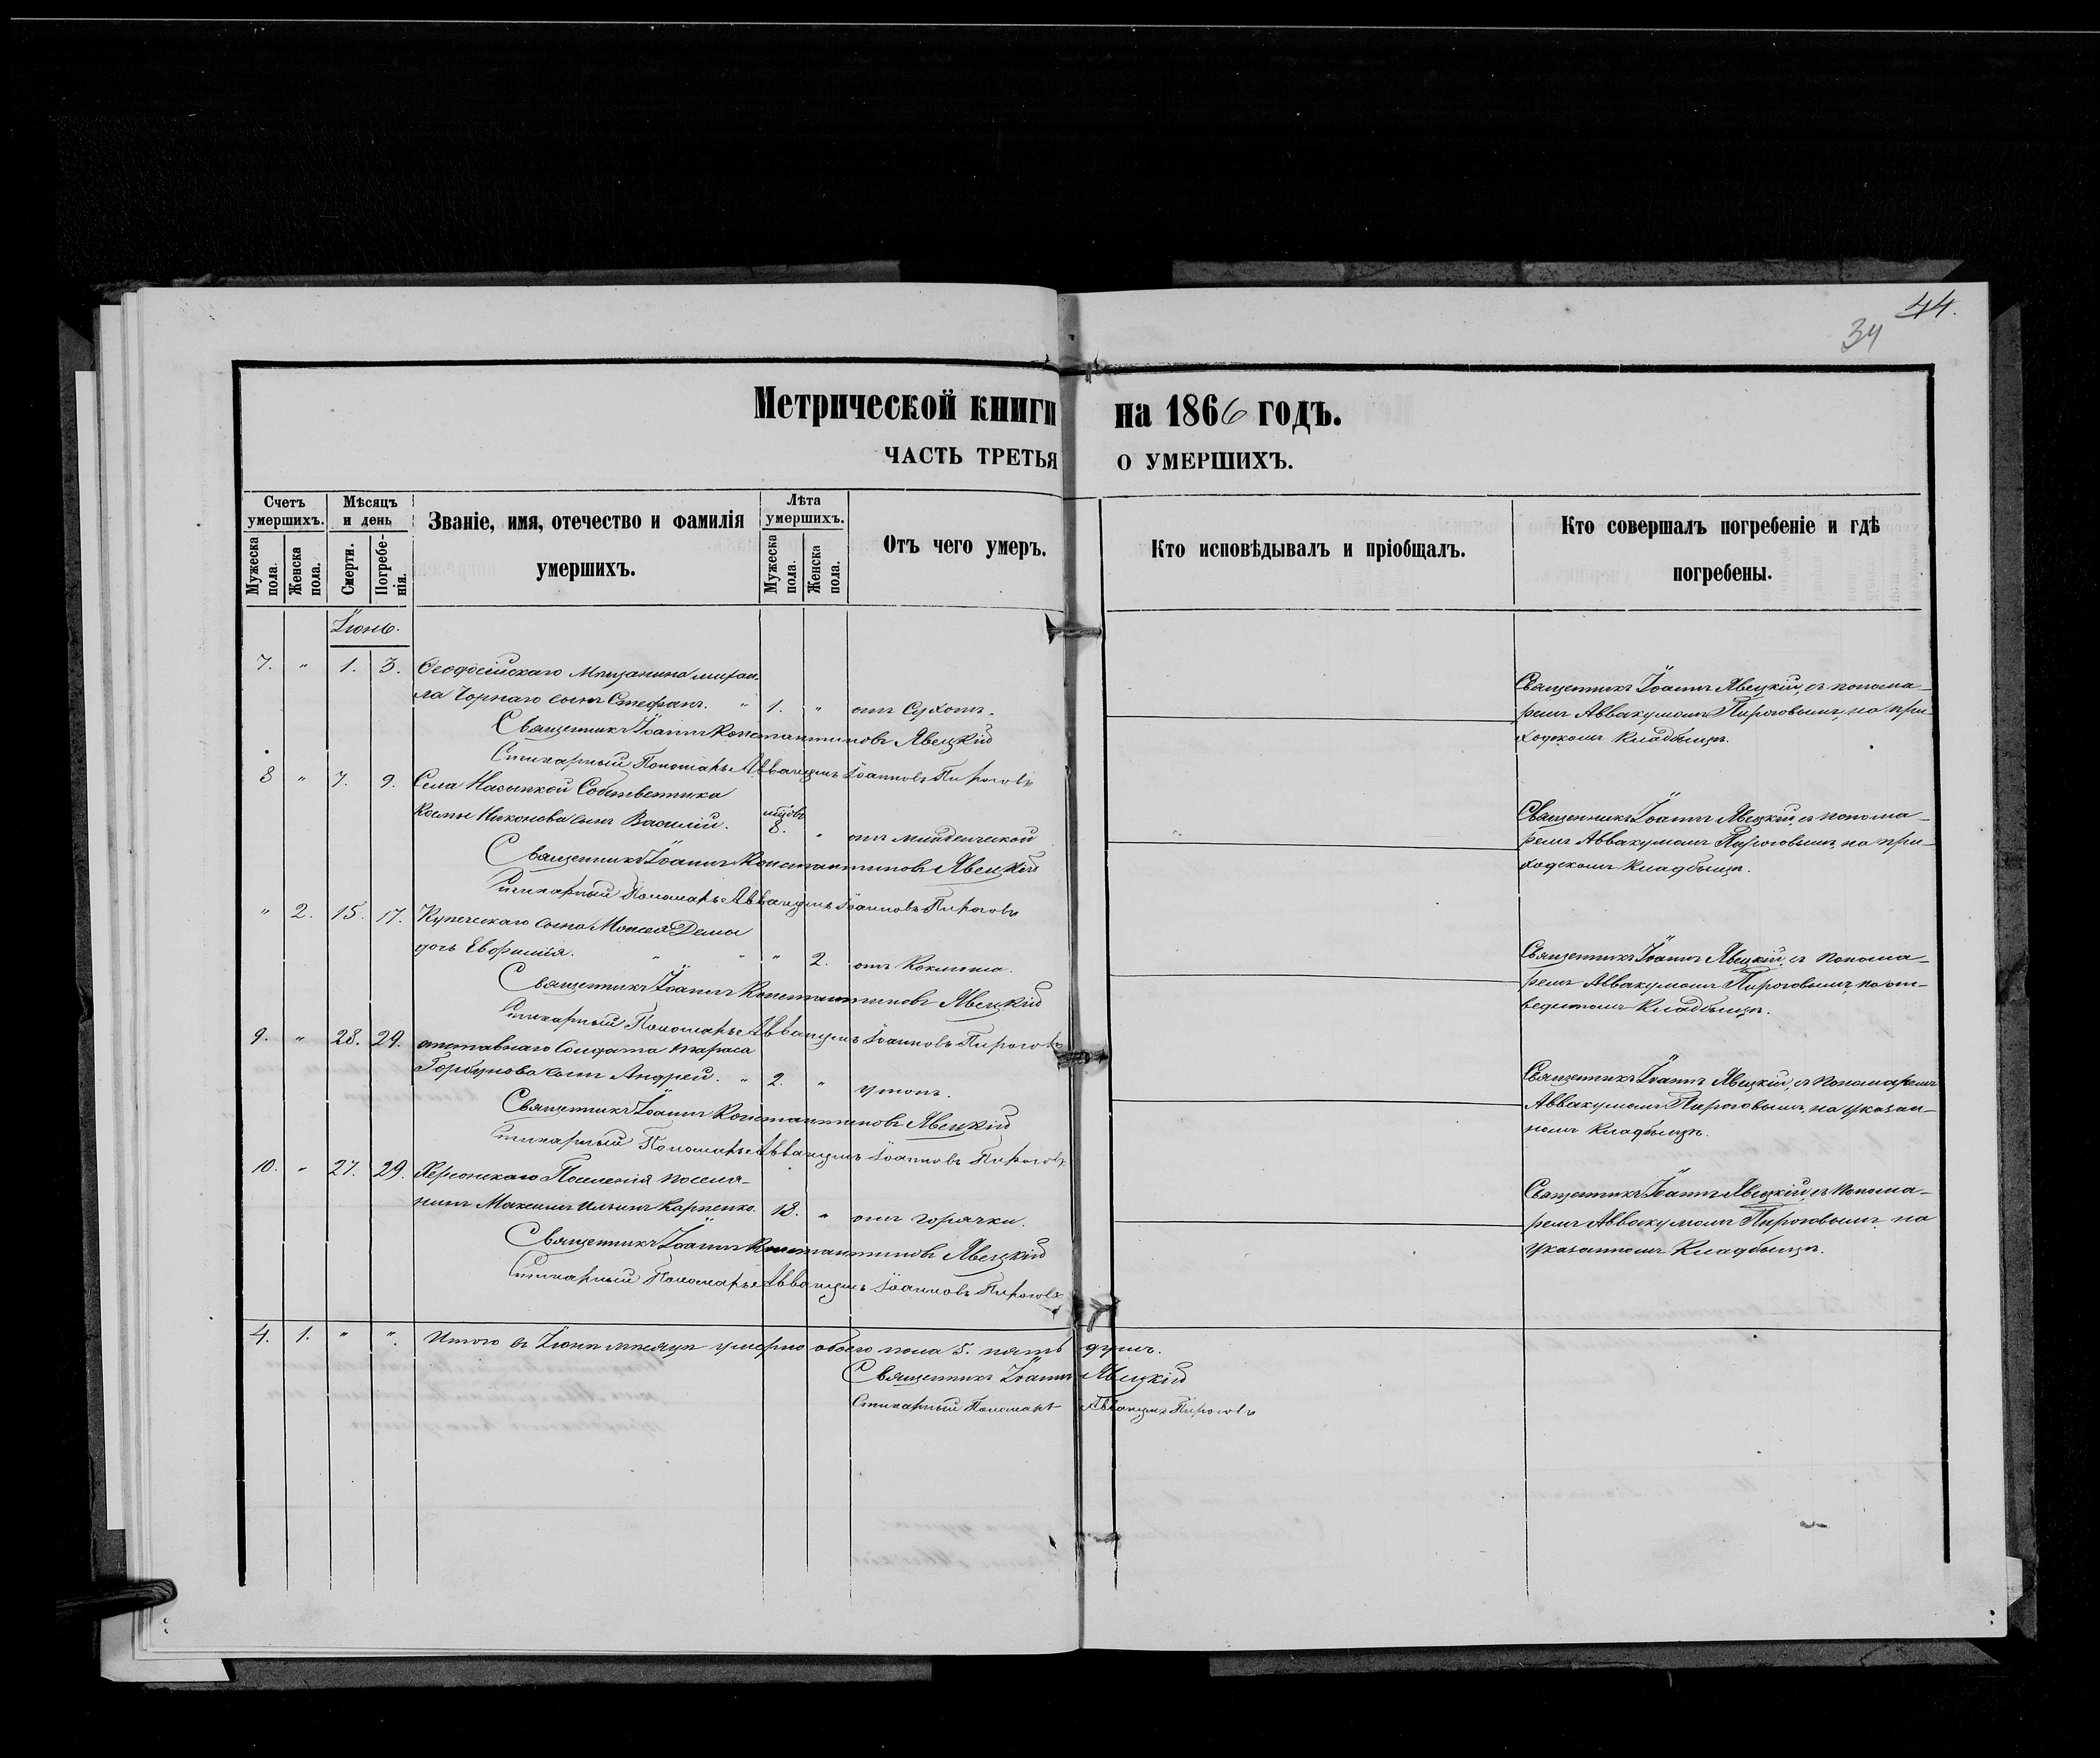 44.
34
Метрической книги на 1866 годъ.
ЧАСТЬ ТРЕТЬЯ О УМЕРШИХЪ.
Счетъ умершихъ.
Мужеска пола.
Женска пола.
Мѣсяцъ и день
Смерти.
Погребенія.
Званіе, имя, отечество и фамилія
умершихъ.
Лѣта умершихъ.
Мужеска пола.
Женска пола.
Отъ чего умеръ.
Кто исповѣдывалъ и пріобщалъ.
Кто совершалъ погребеніе и гдѣ
погребены.
Іюнь.
7. " 1. 3. Ѳеодосійскаго Мѣщанина михаи
ла Чорнаго сынъ Стефанъ. " 1. " отъ Сухот.
Священникъ Іоаннъ Константиновъ Явецкій
Стихарный Пономарь Аввакумъ Іоанновъ Пироговъ
Священникъ Іоаннъ Явецкій, съ понома-
ремъ Аввакумомъ Пироговымъ, на при-
ходскомъ кладбищѣ.
8 " 7. 9. Села Насыпкой Собственника
Космы Никонова сынъ Василій. 8. " отъ младенческой
Священникъ Іоаннъ Константиновъ Явецкій
Стихарный Пономарь Аввакумъ Іоанновъ Пироговъ
Священникъ Іоаннъ Явецкій, съ понома-
ремъ Аввакумомъ Пироговымъ, на при-
ходскомъ кладбищѣ.
" 2. 15. 17. Купеческаго сына Моисея Демы
дочь Евфимія. " " " 2. отъ Коклюша.
Священникъ Іоаннъ Константиновъ Явецкій
Стихарный Пономарь Аввакумъ Іоанновъ Пироговъ
Священникъ Іоаннъ Явецкій, съ Понома-
ремъ Аввакумомъ Пироговымъ, на от-
веденномъ Кладбищѣ.
9. " 28. 29. отставнаго Солдата тараса
Горбунова сынъ Андрей. " 2. " утоп.
Священникъ Іоаннъ Константиновъ Явецкій
Стихарный Пономарь Аввакумъ Іоанновъ Пироговъ
Священникъ Іоаннъ Явецкій, съ Пономаремъ
Аввакумомъ Пироговымъ, на указан-
номъ кладбищѣ.
10. " 27. 29. Херсонскаго Поселенія поселя-
нинъ Максимъ Ильинъ Карпенко. 18. " отъ горячки.
Священникъ Іоаннъ Константиновъ Явецкій
Стихарный Пономарь Аввакумъ Іоанновъ Пироговъ
Священникъ Іоаннъ Явецкій, съ Понома-
ремъ Аввакумомъ Пироговымъ, на
указанномъ Кладбищѣ.
4. 1. " " Итого въ Іюнѣ мѣсяцѣ умерло обоего пола 5. пять душъ.
Священникъ Іоаннъ Явецкій
Стихарный Пономарь Аввакумъ Пироговъ